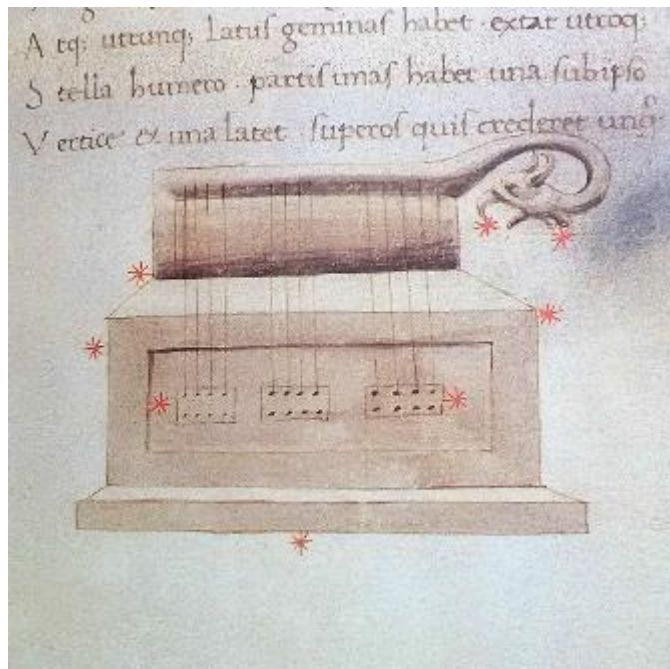 A tq; utrunq; Latuſ geminaſ habet · extat utroq;
S tella humero · partiſ imaſ habet una ſubipſo
V ertice & una latet · ſuperoſ quiſ crederet unq̃